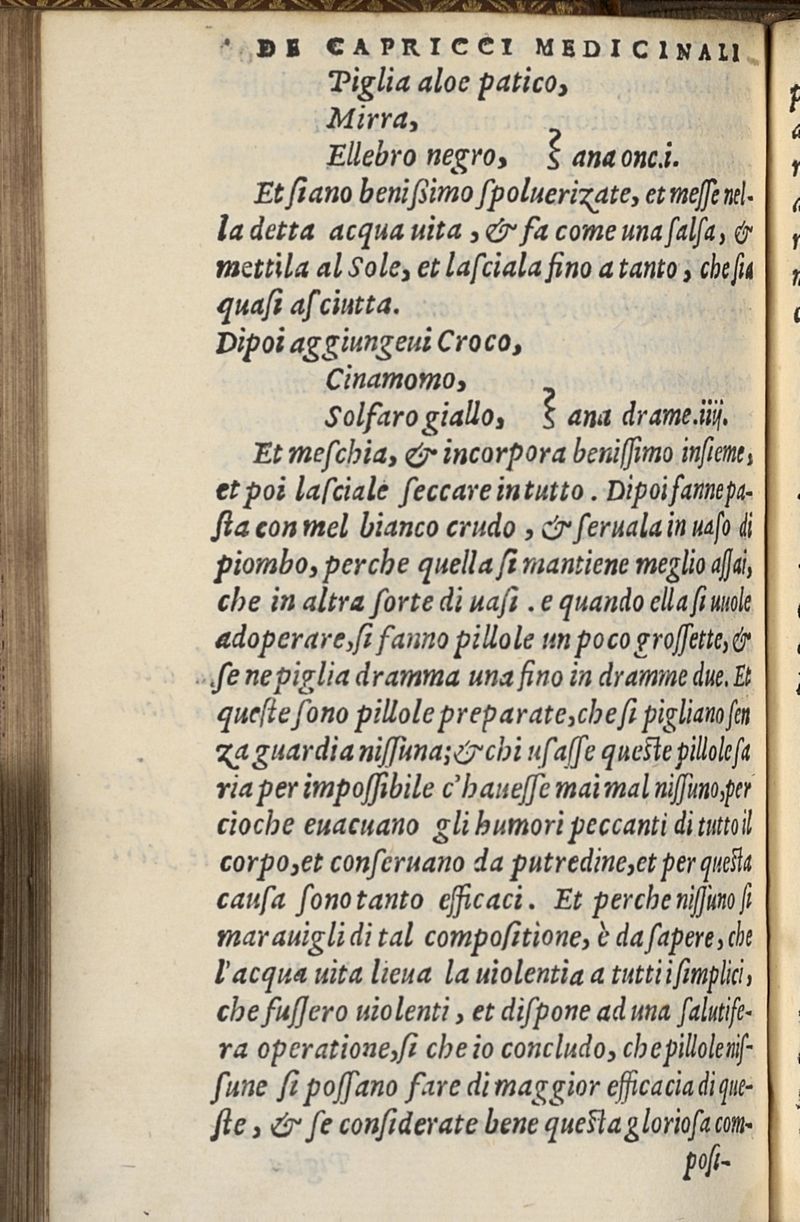 DE CAPRICCI MEDICINALI
Piglia aloe patico,
Mirra,
Ellebro negro, ʒ ana onc.i.
Et ſiano beniſsimo ſpoluerizate, et meſſe nel-
la detta acqua uita , & fa come una ſalſa, &
mettila al Sole, et laſciala fino a tanto , che ſia
quaſi aſciutta.
Dipoi aggiungeui Croco,
Cinamomo,
Solfaro giallo, ʒ ana drame.iiij.
Et meſchia, & incorpora beniſſimo inſieme,
et poi laſciale ſeccare in tutto . Dipoi fanne pa-
ſta con mel bianco crudo , & ſeruala in uaſo di
piombo, perche quella ſi mantiene meglio aſſai,
che in altra ſorte di uaſi . e quando ella ſi uuole
adoperare,ſi fanno pillole un poco groſſette, &
ſe ne piglia dramma una fino in dramme due. Et
queſte ſono pillole preparate,che ſi pigliano ſen
za guardia niſſuna;& chi uſaſſe queſte pillole ſa
ria per impoſſibile c'haueſſe mai mal niſſuno,per
cioche euacuano gli humori peccanti di tutto il
corpo,et conſeruano da putredine,et per queſta
cauſa ſono tanto efficaci. Et perche niſſuno ſi
marauigli di tal compoſitione, è da ſapere, che
l'acqua uita lieua la uiolentia a tutti i ſimplici,
che fuſſero uiolenti , et diſpone ad una ſalutife-
ra operatione,ſi che io concludo, che pillole niſ-
ſune ſi poſſano fare di maggior efficacia di que-
ſte , & ſe conſiderate bene queſta glorioſa com-
poſi-